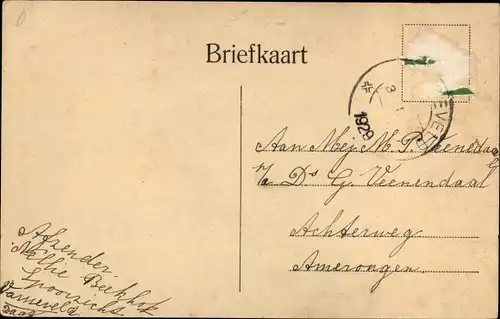 Briefkaart
1929
Aan Mej. M. P. Veenendaal
p/a Ds G. Veenendaal
Achterweg
Amerongen
Afzender.
Nellie Beekhof
Spoorzicht
Barneveld